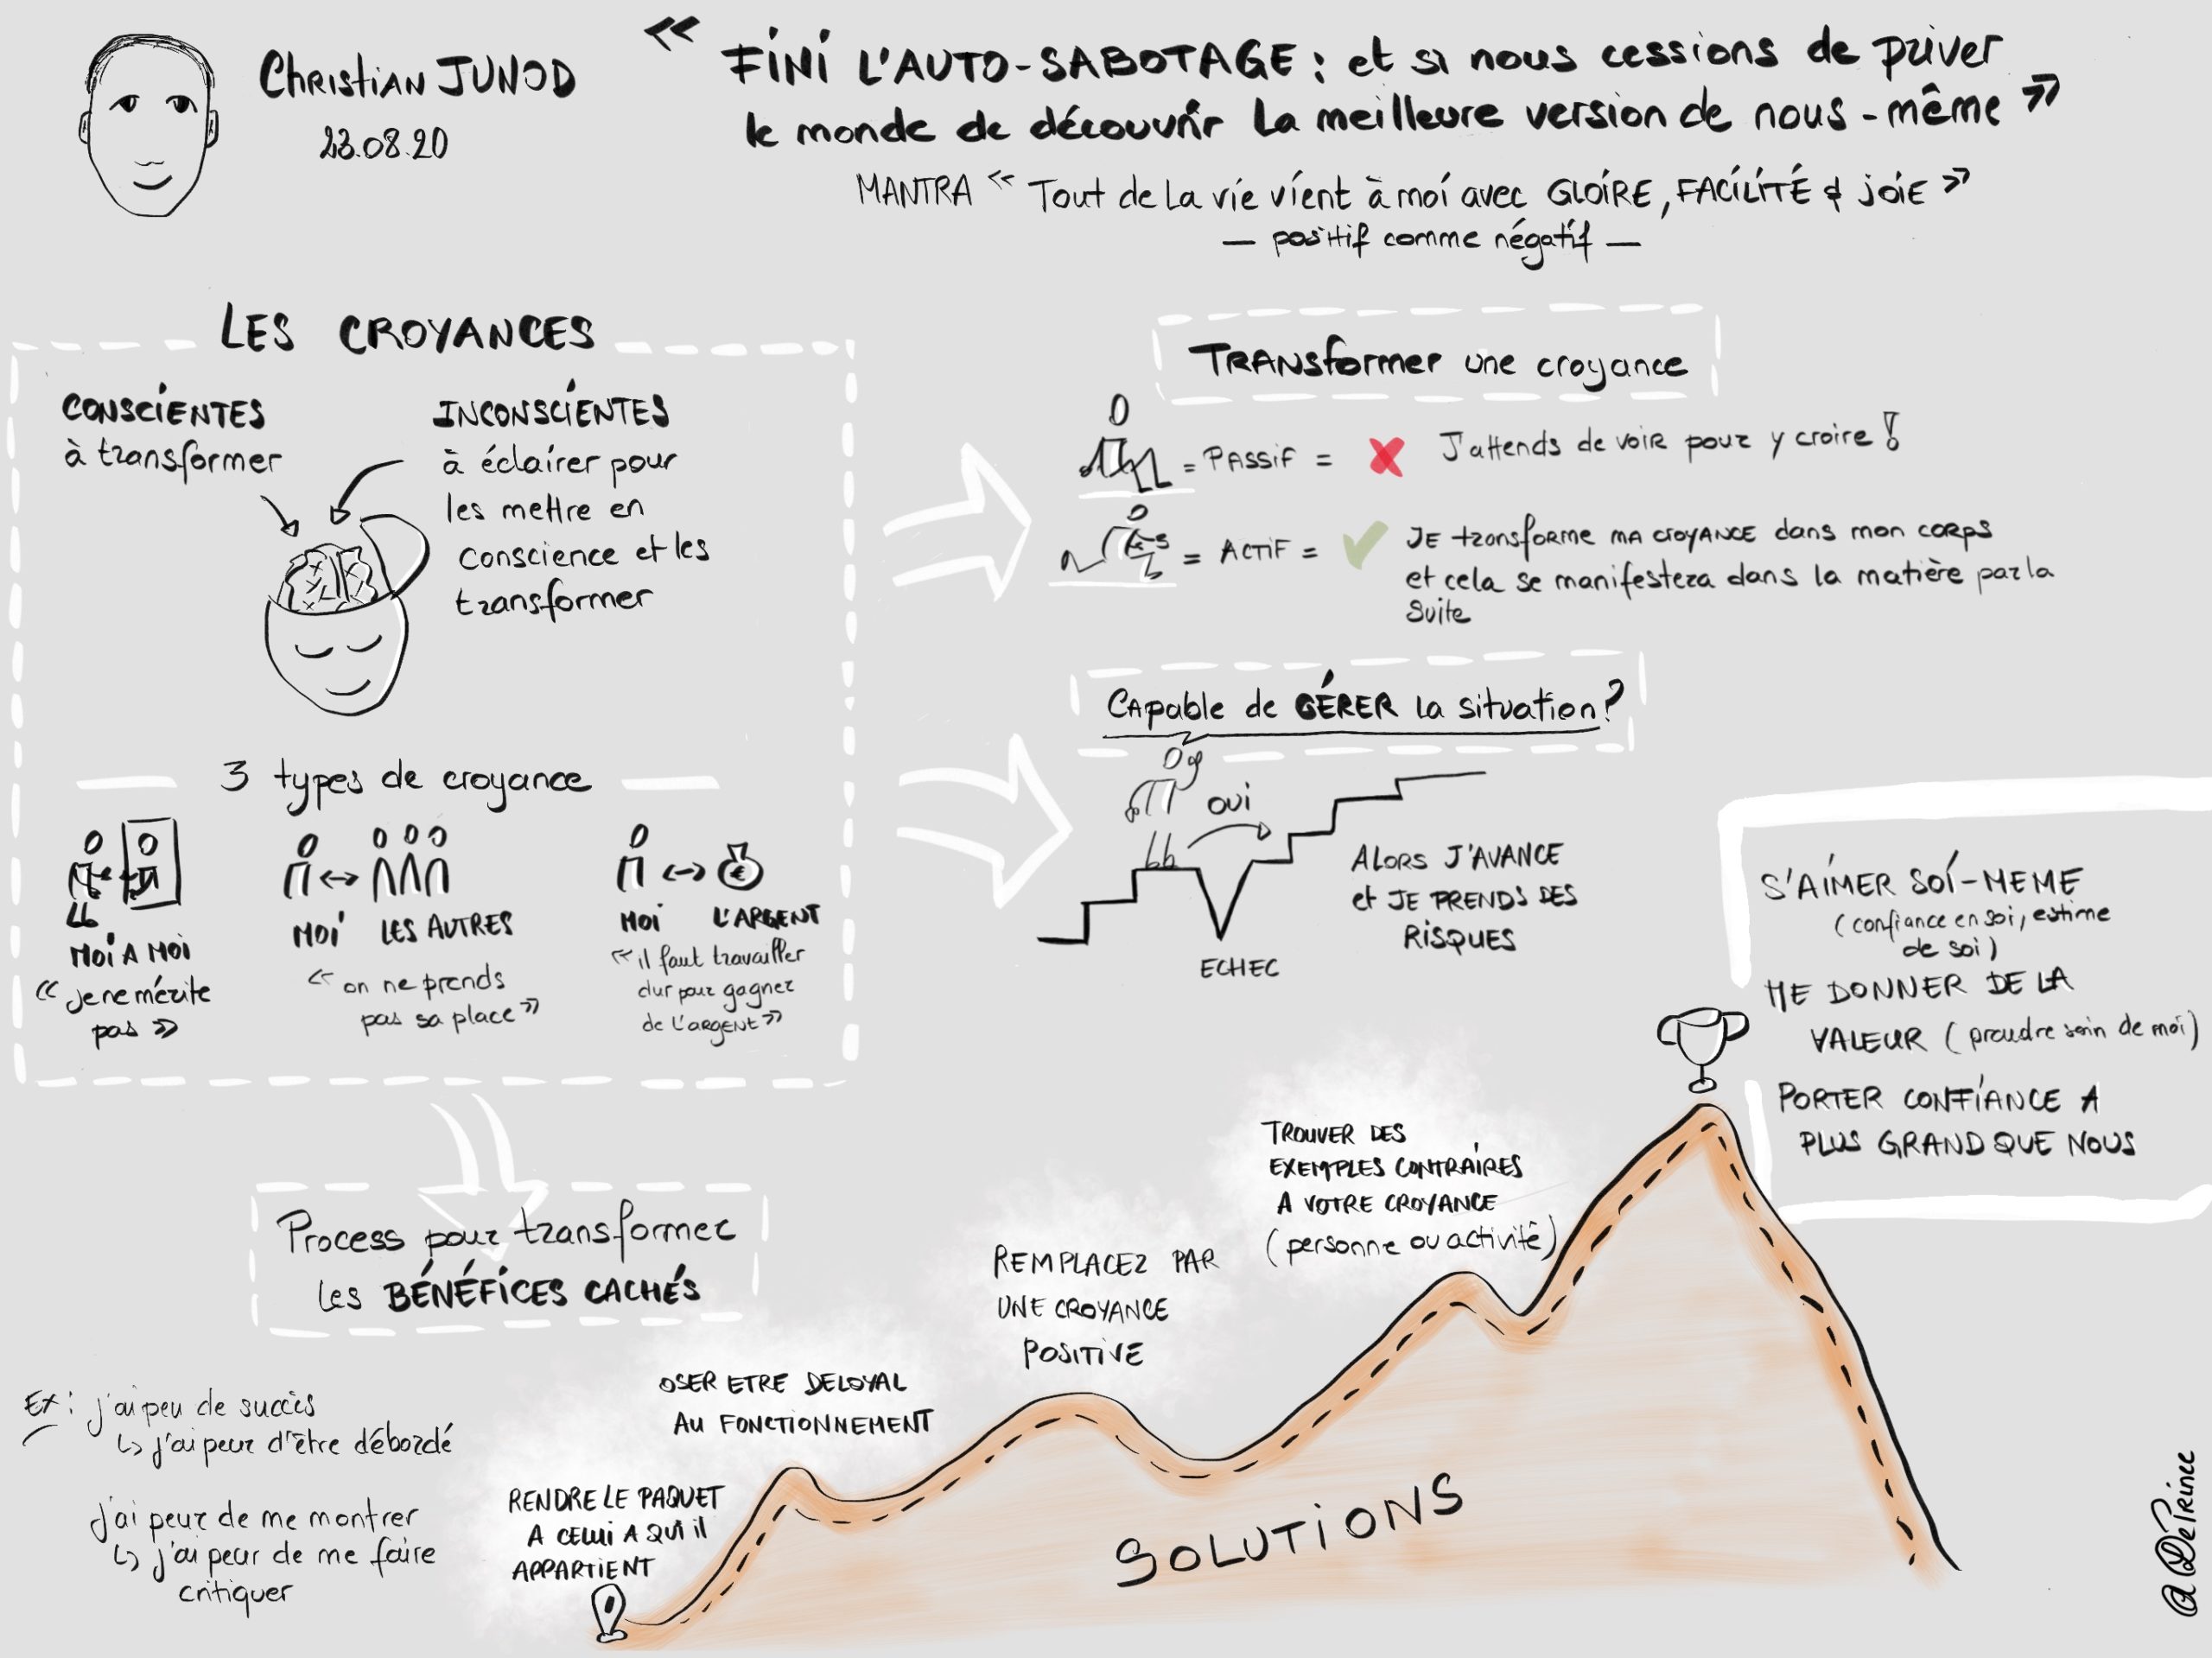 Christian JUNOD
23.08.20
« FINI L'AUTO-SABOTAGE : et si nous cessions de priver
le monde de découvrir la meilleure version de nous-même »
MANTRA « Tout de la vie vient à moi avec GLOIRE, FACILITÉ & JOIE »
— positif comme négatif —
LES CROYANCES
CONSCIENTES
à transformer
INCONSCIENTES
à éclairer pour
les mettre en
conscience et les
transformer
3 types de croyance
MOI A MOI
« je ne mérite
pas »
MOI LES AUTRES
« on ne prends
pas sa place »
MOI L'ARGENT
« il faut travailler
dur pour gagner
de l'ARGENT »
TRANSformer une croyance
= PASSIF = J'attends de voir pour y croire !
= ACTIF = JE transforme MA croyance dans mon corps
et cela se manifestera dans la matière par la
suite
Capable de GÉRER la situation ?
OUI
ECHEC
ALORS J'AVANCE
et JE PRENDS DES
RISQUES
S'AIMER SOI-MEME
(confiance en soi, estime
de soi)
ME DONNER DE LA
VALEUR (prendre soin de moi)
PORTER CONFIANCE A
PLUS GRAND QUE NOUS
Process pour transformer
les BÉNÉFICES CACHÉS
EX : j'ai peu de succès
↳ j'ai peur d'être débordé
j'ai peur de me montrer
↳ j'ai peur de me faire
critiquer
RENDRE LE PAQUET
A CELUI A QUI il
APPARTIENT
OSER ETRE DELOYAL
AU FONCTIONNEMENT
REMPLACEZ PAR
UNE CROYANCE
POSITIVE
TROUVER DES
EXEMPLES CONTRAIRES
A VOTRE CROYANCE
(personne ou activité)
SOLUTIONS